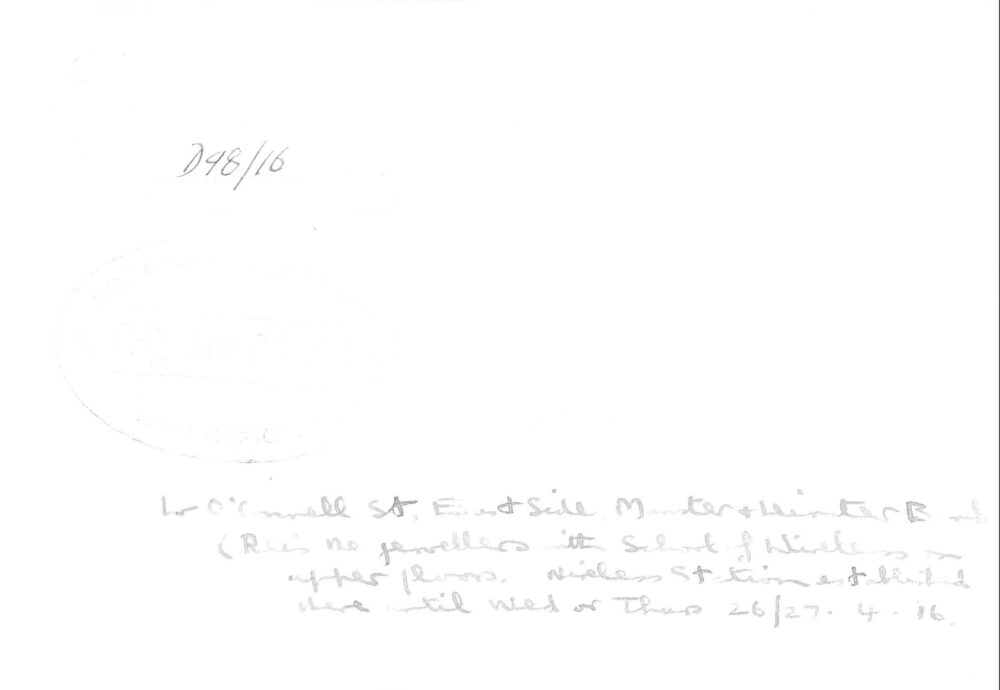 D98/16
Lr O'Connell St. East Side Munster & Leinster Bank
(Reis the jewellers with School of Wireless on
upper floors. Wireless Station established
there until Wed or Thurs 26/27. 4. 16.